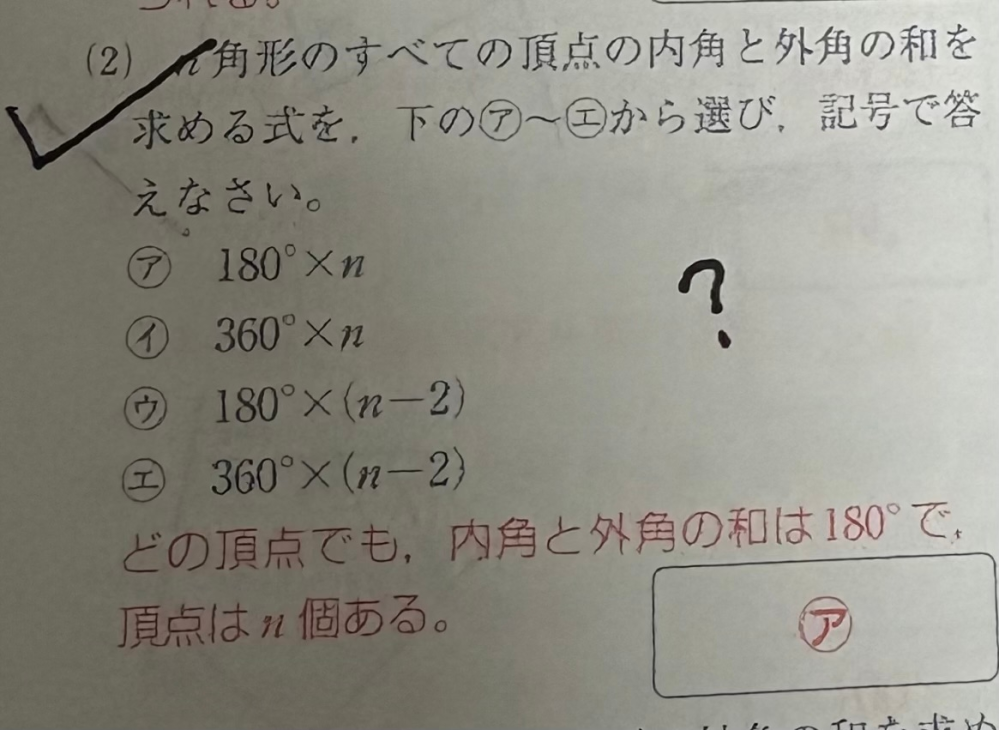 (2) n角形のすべての頂点の内角と外角の和を
求める式を,下の㋐〜㋓から選び,記号で答
えなさい。
㋐ 180°×n
㋑ 360°×n
?
㋒ 180°×(n−2)
㋓ 360°×(n−2)
どの頂点でも,内角と外角の和は180°で,
頂点はn個ある。
㋐